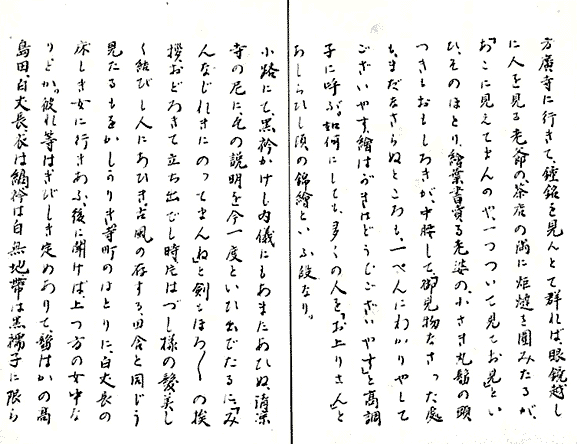 方廣寺に行きて、鐘銘を見んとて群れば、眼鏡越し
に人を見る老爺の、茶店の隅に炬燵を圍みたるが、
「おこに見えてまんのや、一つついて見てお見」とい
ひ、そのほとり、繪葉書賣る老婆の、小さき丸髷の頭
つきもおもしろきが、中腰して、「御見物なさつた處
も、まだなさらぬところも、一ぺんにわかりやして
ございやす、繪はがきはどうでございやす」と高調
子に呼ぶ。如何にしても、多くの人を「お上りさん」と
あしらひし頃の錦繪といふ段なり。
小路にて、黒衿かけし内儀にもあまたあひぬ、清梁
寺の尼に、其の説明を今一度といひ出でたるに、「み
んなじれきにのつてまんね」と劍もほろ〳〵の挨
拶おどろきて立ち出でし時、片はづし様の髪美し
く結びし人にあひき、古風の存する、田舎と同じう
見たるもをかしうりき、寺町のほとりに、白丈長の
床しき女に行きあふ、後に聞けば、上つ方の女中な
りとか。彼れ等はきびしき定めありて、髷はかの高
島田、白丈長、衣は縞、衿は白無地、帶は黒襦子に限ら